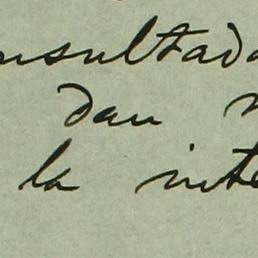 nsultada
dan
la inte